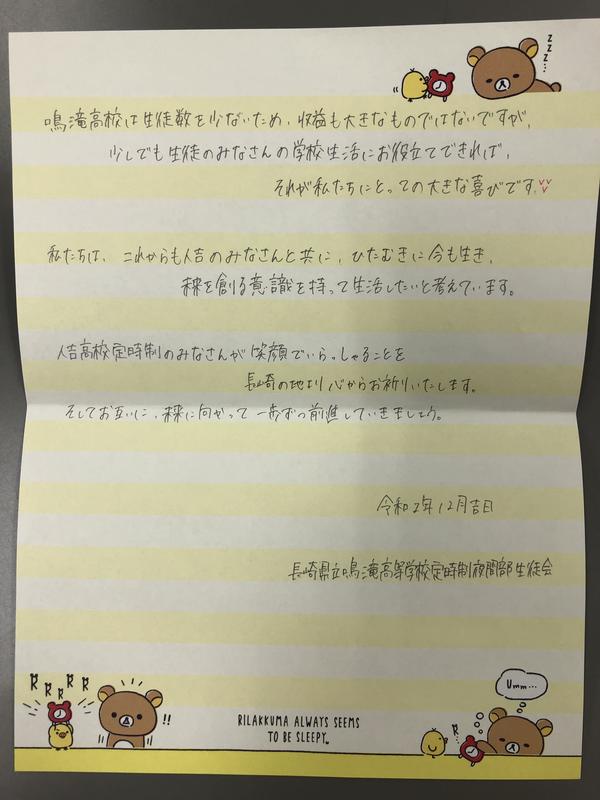 zzz...
鳴滝高校は生徒数も少ないため、収益も大きなものではないですが、
少しでも生徒のみなさんの学校生活にお役立てできれば、
それが私たちにとっての大きな喜びです。
私たちは、これからも人吉のみなさんと共に、ひたむきに今も生き、
未来を創る意識を持って生活したいと考えています。
人吉高校定時制のみなさんが笑顔でいらっしゃることを
長崎の地より心からお祈りいたします。
そしてお互いに、未来に向かって一歩ずつ前進していきましょう。
令和2年12月吉日
長崎県立鳴滝高等学校定時制夜間部生徒会
RRRRR
!!
RILAKKUMA ALWAYS SEEMS
TO BE SLEEPY.
Umm...
R